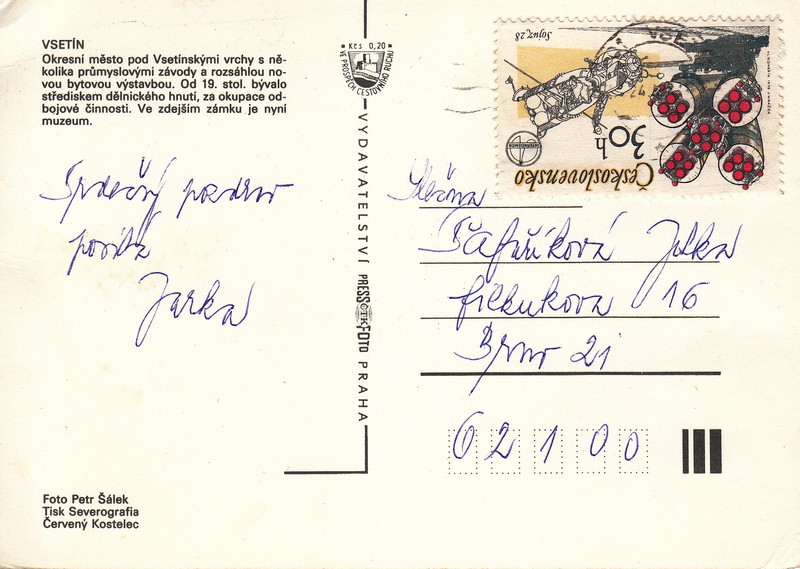 VSETÍN
Okresní město pod Vsetínskými vrchy s ně-
kolika průmyslovými závody a rozsáhlou no-
vou bytovou výstavbou. Od 19. stol. bývalo
střediskem dělnického hnutí, za okupace od-
bojové činnosti. Ve zdejším zámku je nyní
muzeum.
Srdečný pozdrav
posílá
Jarka
Foto Petr Šálek
Tisk Severografia
Červený Kostelec
Kčs 0,20
VE PROSPĚCH CESTOVNÍHO RUCHU
VYDAVATELSTVÍ PRESSFOTO PRAHA
ČTK
Sojuz 28
INTERKOSMOS
30h
Československo
Slečna
Šafaříková Jitka
Filkukova 16
Brno 21
62100